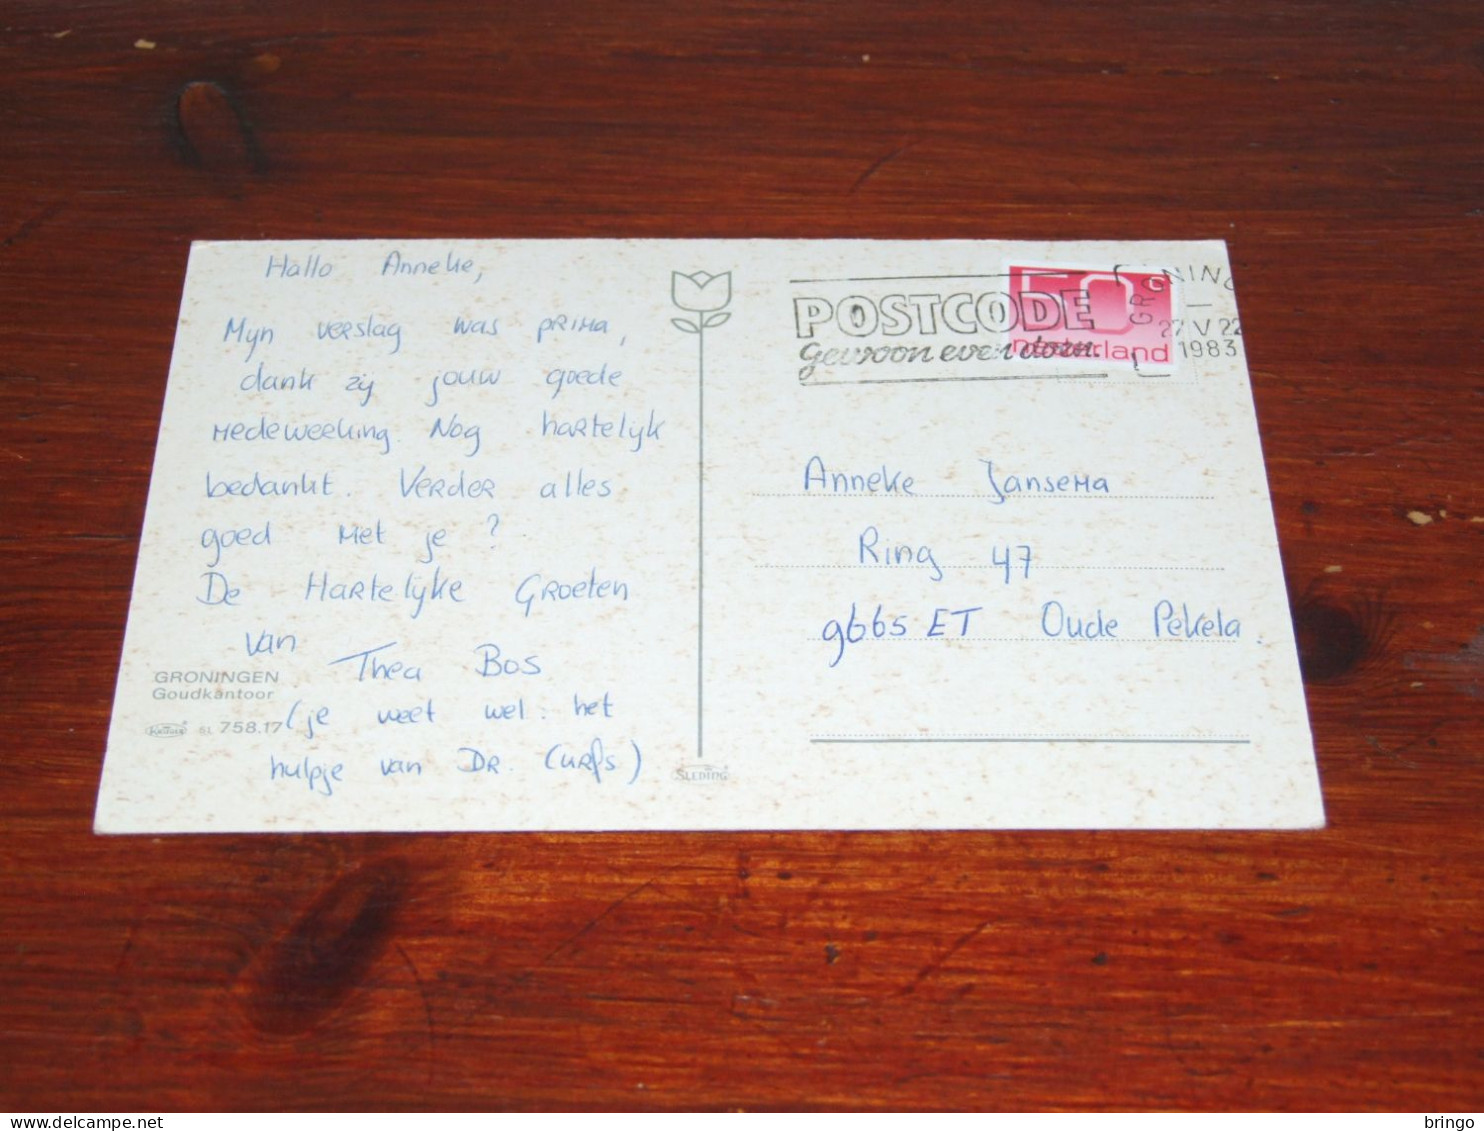 Hallo Anneke,
Mijn verslag was prima,
dank zij jouw goede
medewerking Nog hartelijk
bedankt. Verder alles
goed met je?
De Hartelijke Groeten
van
Thea Bos
(je weet wel: het
hulpje van Dr.
GRONINGEN
Goudkantoor
SL 758.17
SLEDING
POSTCODE
gewoon even doen.
c
nederland
27 V 22
1983
Anneke Jansema
Ring 47
9665 ET Oude Pekela.
bringo